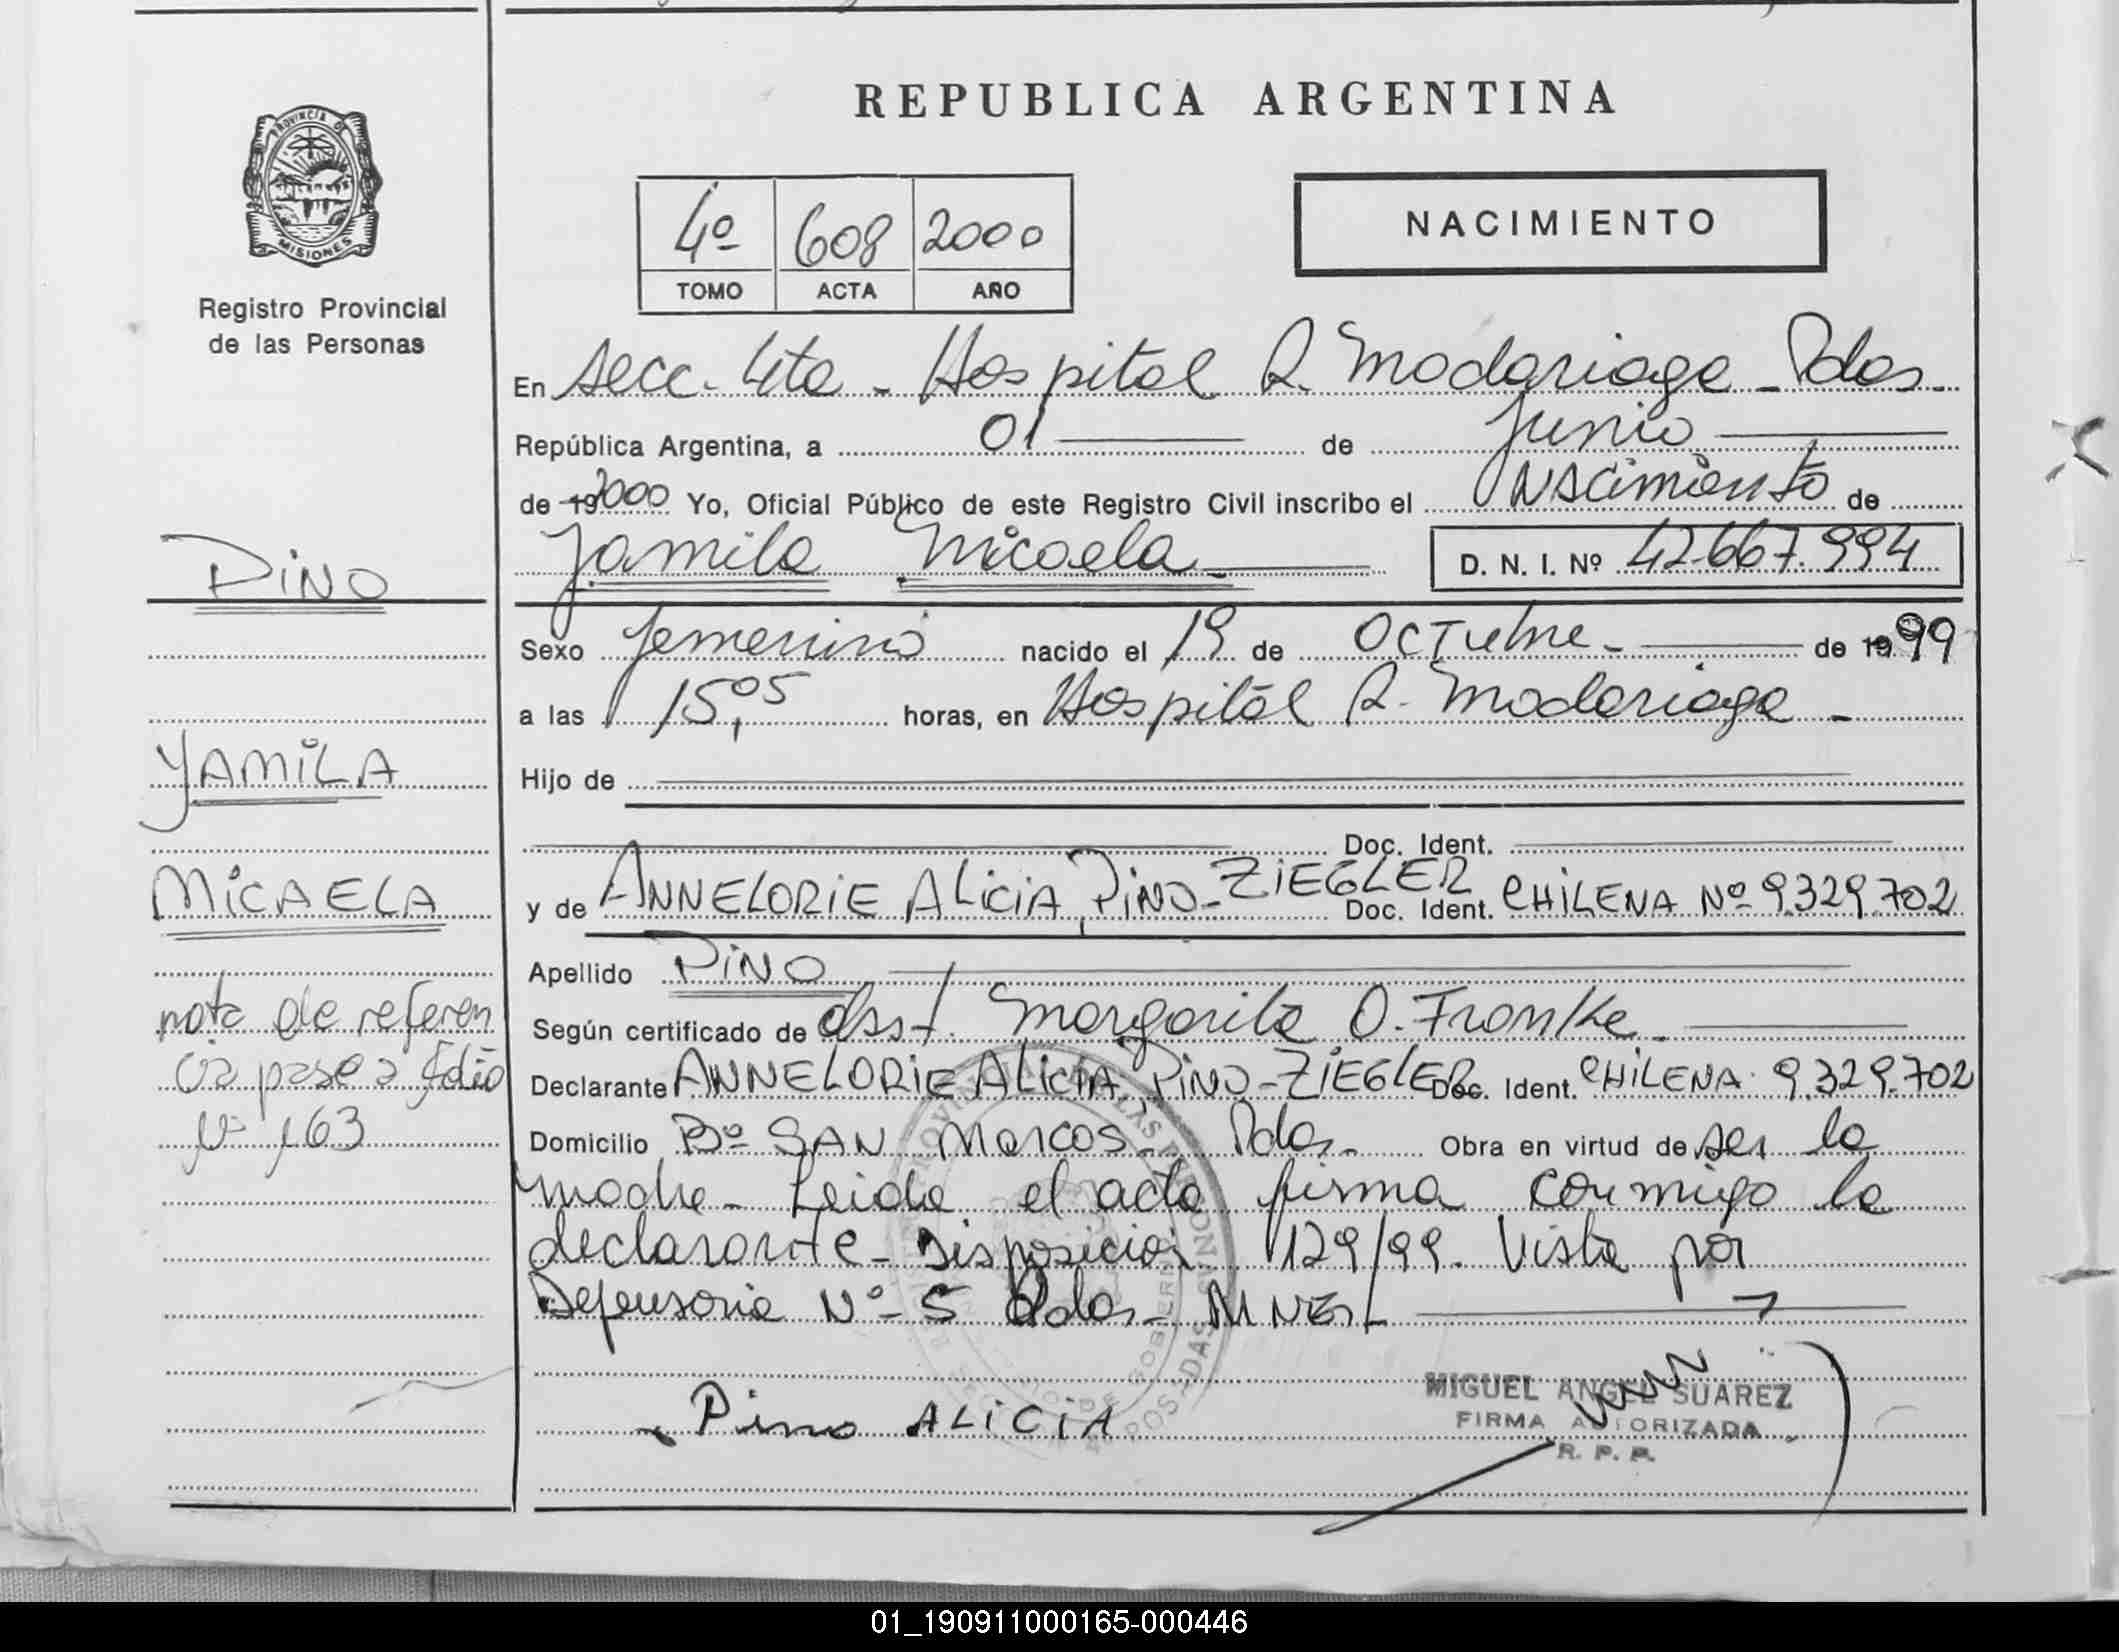 REPUBLICA ARGENTINA
PROVINCIA DE
MISIONES
Registro Provincial
de las Personas
4º 608 2000
TOMO ACTA AÑO
NACIMIENTO
En Secc. 4ta - Hospital R. Madariaga - Pdas.
República Argentina, a 01 de Junio
de 19 2000 Yo, Oficial Público de este Registro Civil inscribo el Nacimiento de
Yamila Micaela D. N. I. Nº 42.667.994
Sexo femenino nacido el 19 de Octubre de 19 99
a las 15,05 horas, en Hospital R. Madariaga -
Hijo de
Doc. Ident.
y de ANNELORIE ALICIA PINO-ZIEGLER Doc. Ident. CHILENA Nº 9.329.702
Apellido PINO
Según certificado de Obst. Margarita O. Franke
Declarante ANNELORIE ALICIA PINO-ZIEGLER Doc. Ident. CHILENA 9.329.702
Domicilio Bº SAN Marcos - Pdas. Obra en virtud de ser la
madre - Leida el acta firma conmigo la
declarante - Disposición 129/99. Vista por
Defensoria Nº 5 Pdas.
Pino ALICIA
MIGUEL ANGEL SUAREZ
FIRMA AUTORIZADA
R. P. P.
PINO
YAMILA
MICAELA
nota de referen
cia pase a folio
Nº 163
01_190911000165-000446